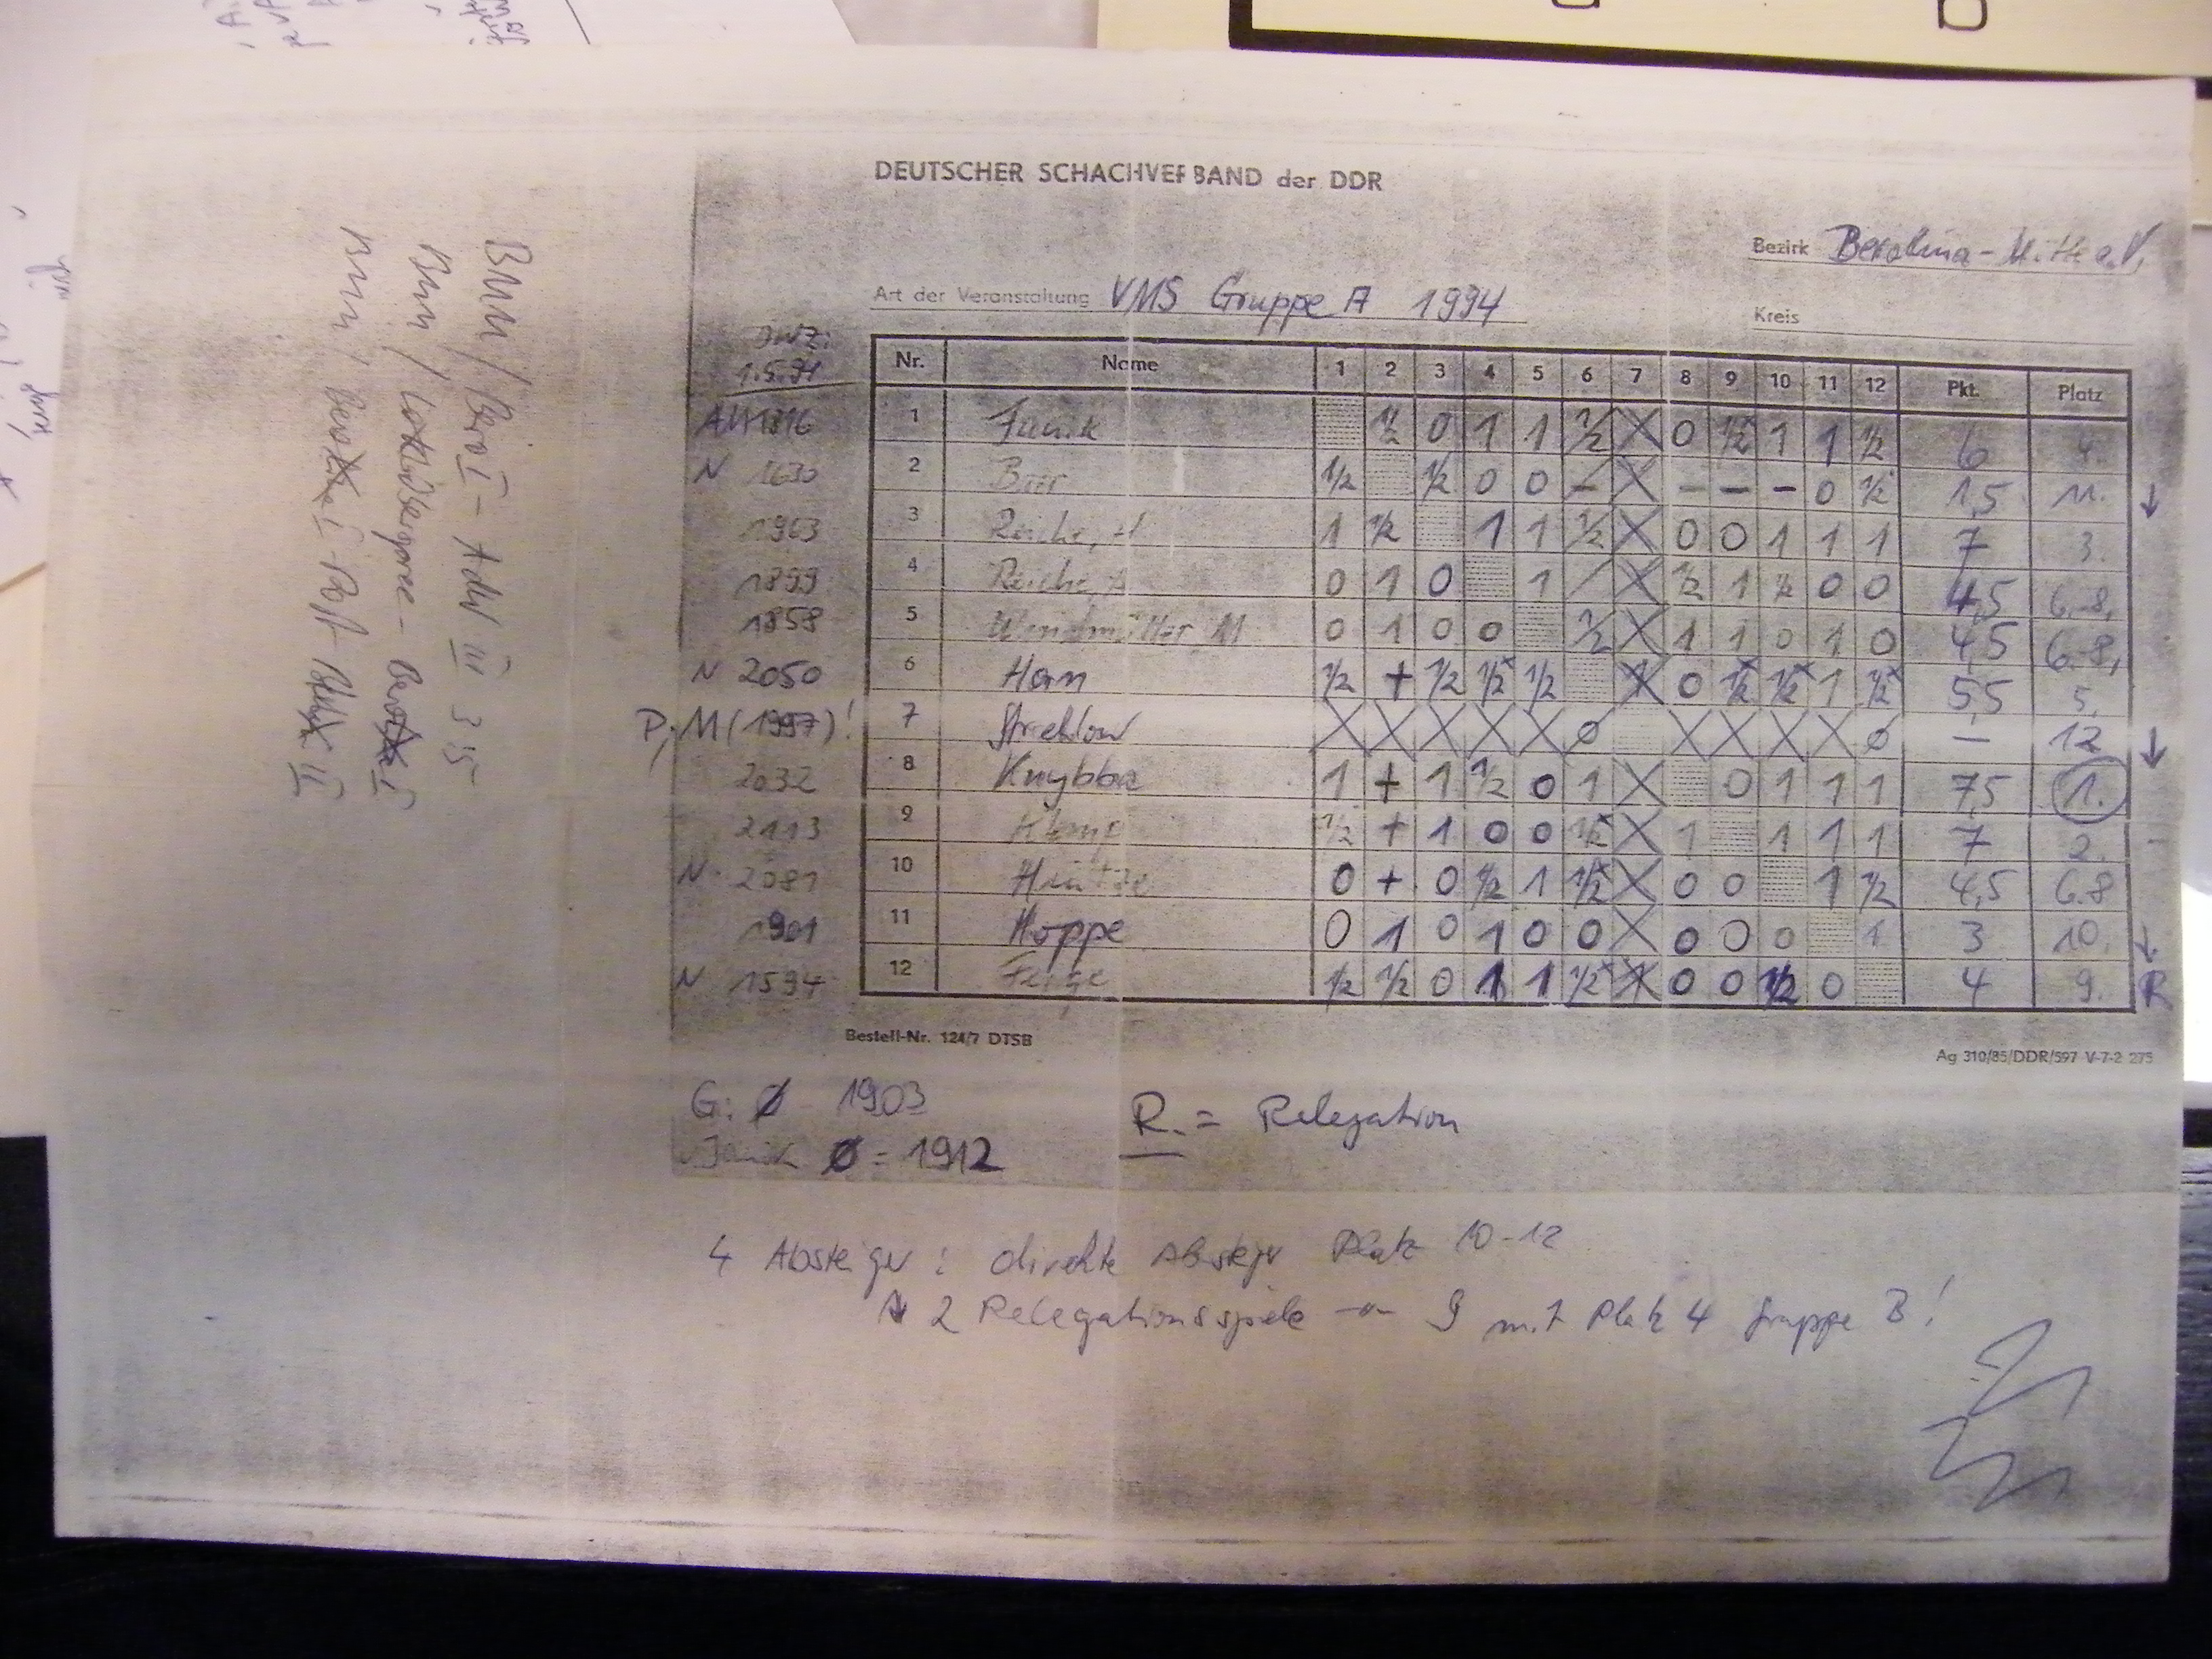 DEUTSCHER SCHACHVERBAND der DDR
Bezirk Berolina-Mitte e.V.
Art der Veranstaltung VMS Gruppe A 1994
Kreis
DWZ:
1.5.94
Nr. Name 1 2 3 4 5 6 7 8 9 10 11 12 Pkt. Platz
1816 1 ½ 0 1 1 ½ X 0 ½ 1 1 ½ 6 4.
N 1630 2 ½ ½ 0 0 – X – – – 0 ½ 1,5 11. ↓
1963 3 Reiche, H 1 ½ 1 1 ½ X 0 0 1 1 1 7 3.
1899 4 Reiche, A 0 1 0 1 / X ½ 1 ½ 0 0 4,5 6.-8.
1858 5 Windmüller M 0 1 0 0 ½ X 1 1 0 1 0 4,5 6.-8.
N 2050 6 Horn ½ + ½ ½ ½ X 0 ½ ½ 1 ½ 5,5 5.
P.M (1997)! 7 Strehlow X X X X X ø X X X X ø – 12 ↓
2032 8 Knybba 1 + 1 ½ 0 1 X 0 1 1 1 7,5 1.
2113 9 ½ + 1 0 0 ½ X 1 1 1 1 7 2. -
N 2081 10 Hintze 0 + 0 ½ 1 ½ X 0 0 1 ½ 4,5 6.8
1901 11 Hoppe 0 1 0 1 0 0 X 0 0 0 1 3 10. ↓
N 1594 12 Feige ½ ½ 0 1 1 ½ X 0 0 ½ 0 4 9. R
Bestell-Nr. 124/7 DTSB
Ag 310/85/DDR/597 V-7-2 275
G: Ø 1903
R. = Relegation
Ø = 1912
4 Absteiger : direkte Absteiger Platz 10-12
2 Relegationsspiele -"- 9 mit Platz 4 Gruppe B!
BMM / Bero I - AdW III 3 5
BMM / - Bero I
BMM / I - Post II